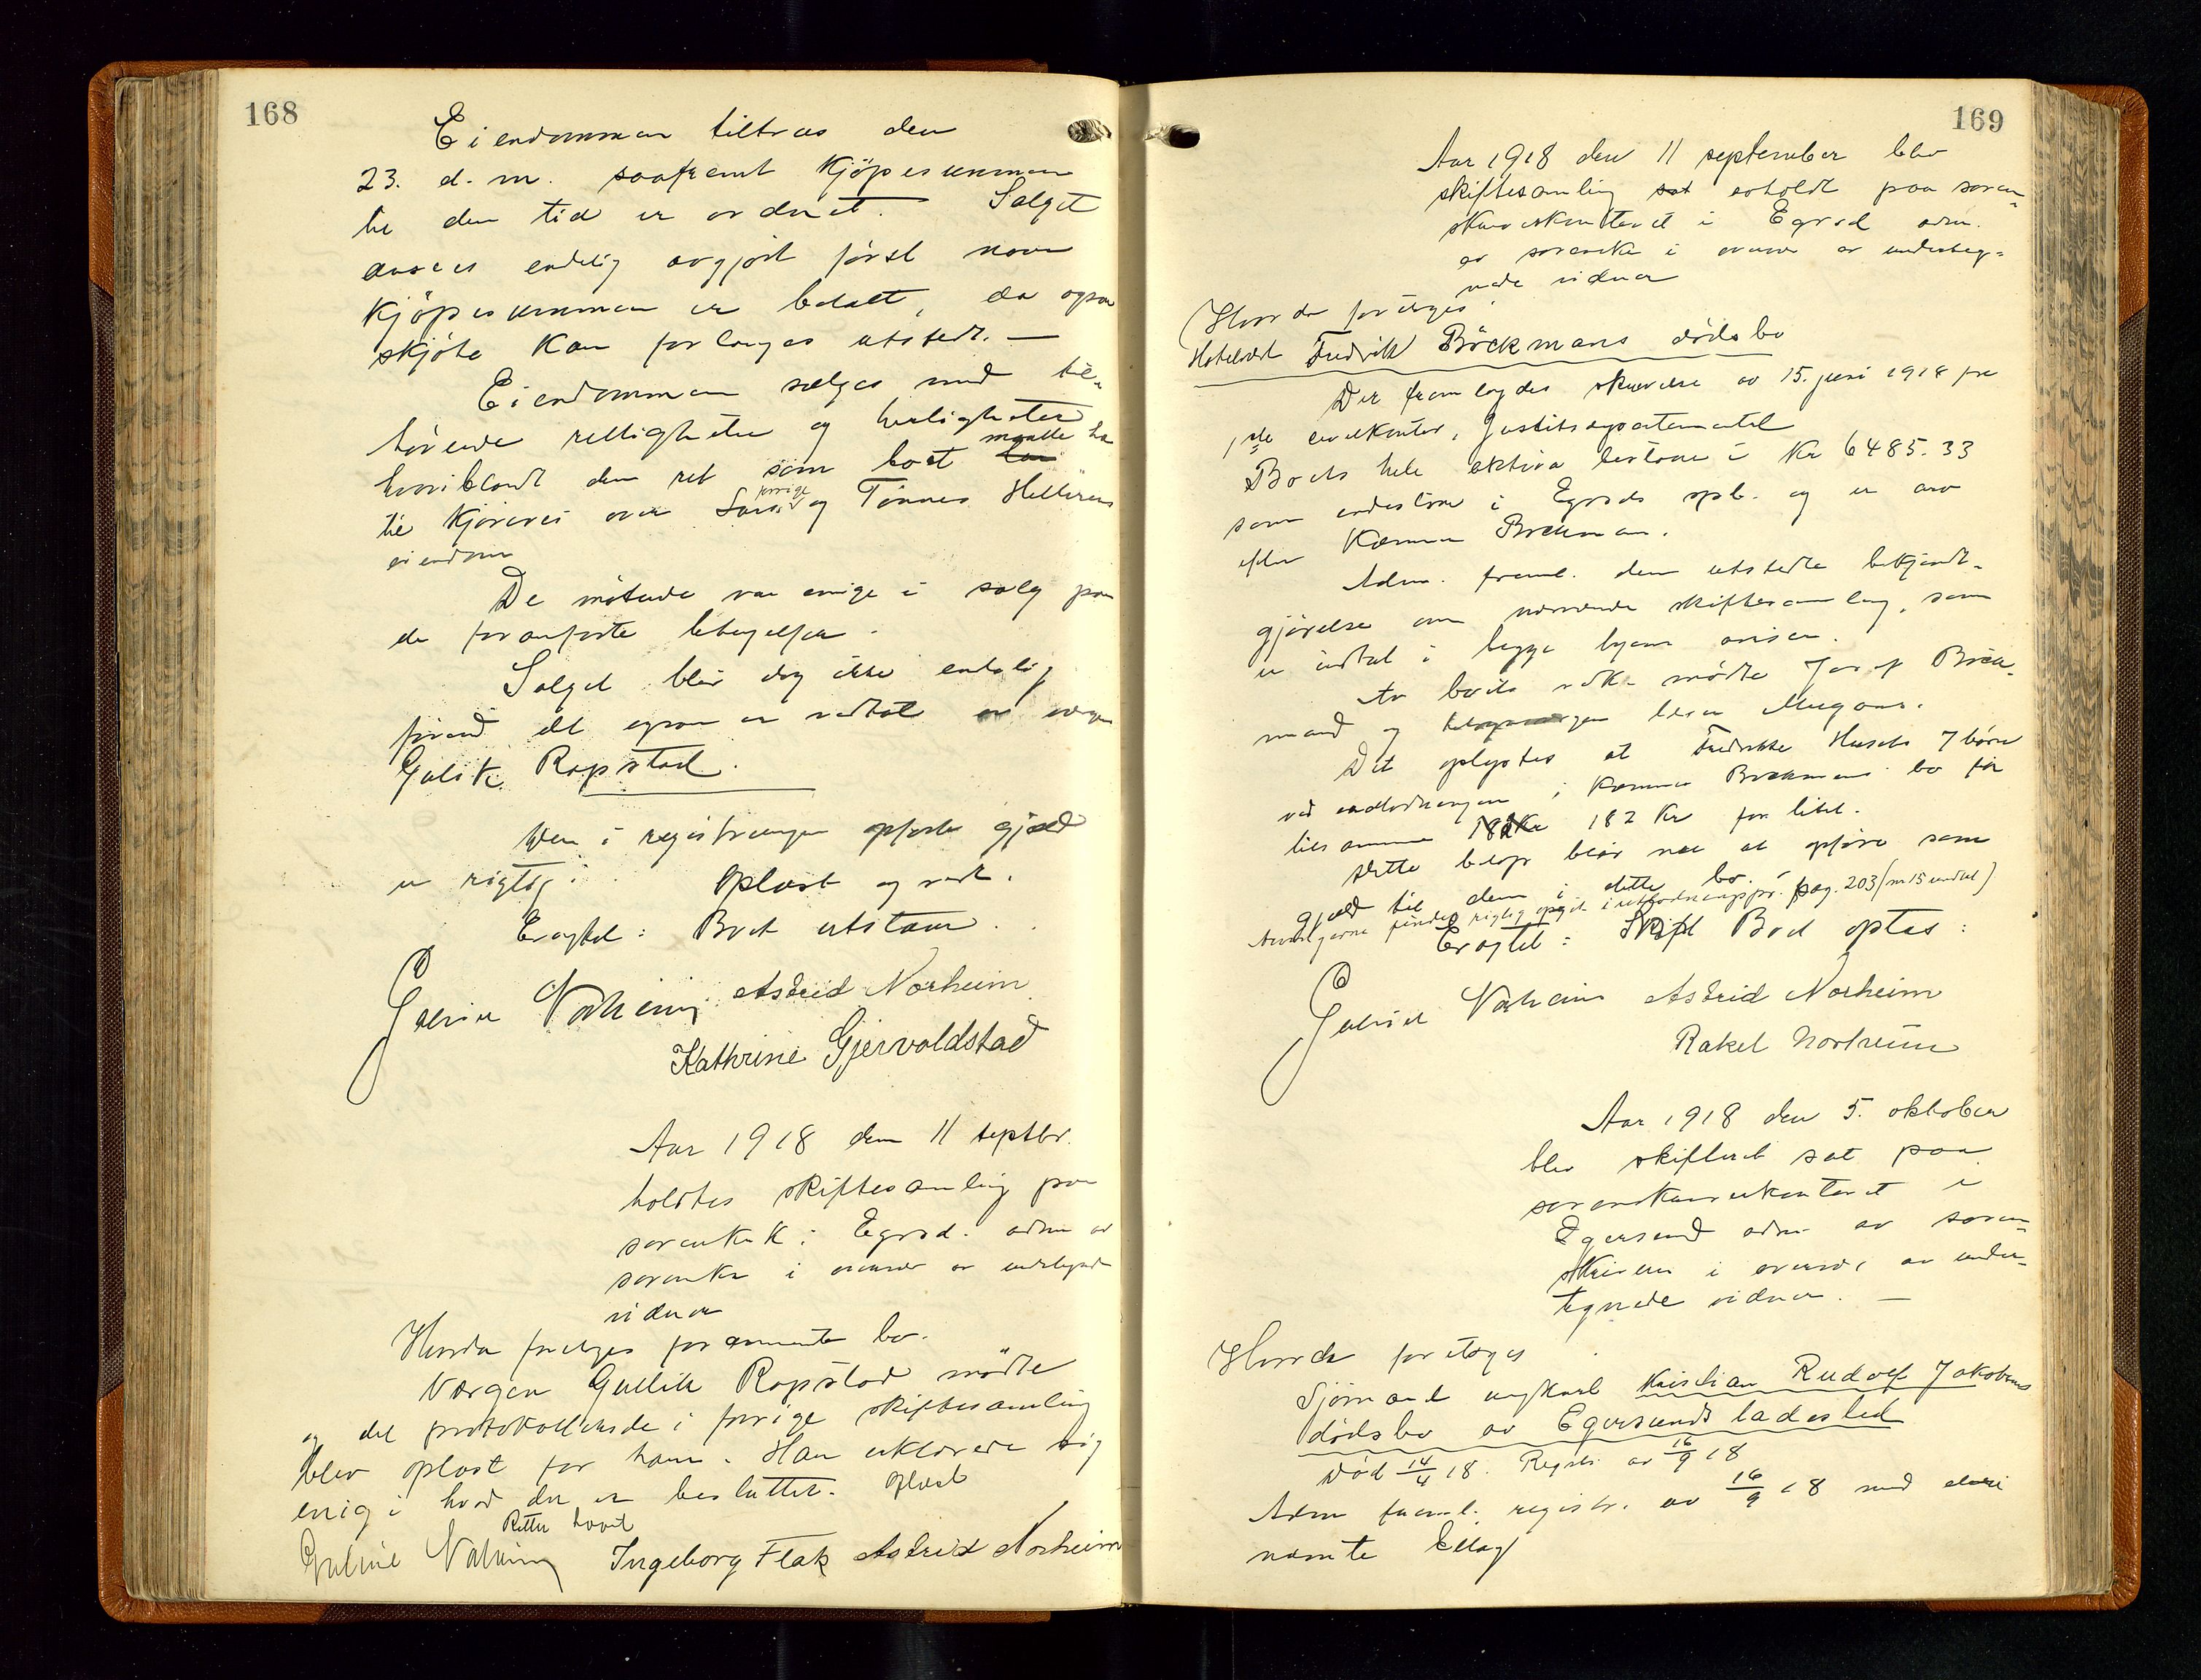 168
Eiendommen tiltræs den
23. d. m. saafremt Kjöpesummen
til den tid er ordnet. Salget
ansees endelig avgjort först naar
Kjöpesummen er betalt, da ogsaa
skjöte Kan forlanges utstedt. —
Eiendommen sælges med til-
hörende rettigheter og herligheter
hvoriblandt den ret som boet maatte ha
til Kjörevei over Lars og Tönnes Hellerens
eiendom
De mötende var enige i salg paa
de foranförte betingelser.
Salget blir dog ikke endelig
förend det ogsaa er vedtat av vergen
Gulik Rapstad.
Den i registreringen opförte gjæld
er rigtig. Oplæst og vedt.
Eragtet: Boet utstaar.
Astrid Norheim
Kathrine Gjervoldstad
Aar 1918 den 11 septbr.
holdtes skiftesamling paa
sorenskk i Egrsd. adm av
sorenskr i overvær av undertegnede
vidner
Hvorda foretages forannævnte bo.
Værgen Gullik Rapstad mödte
og det protokollerede i forrige skiftesamling
blev oplæst for ham. Han erklærede sig
enig i hvad der er besluttet. Oplæst
Retten hævet
Ingeborg Flak Astrid Norheim
169
Aar 1918 den 11 september blev
skiftesamling sat avholdt paa soren-
skriverkontoret i Egrsd adm.
av sorenskr i overvær av underteg-
nede vidner
Hvorda foretages
Hotelvert Fredrik Böckmans dödsbo
Der fremlagdes skrivelse av 15. juni 1918 fra
1ste civilkontor, Justitsdepartementet
Boets hele aktiva bestaar i Kr 6485.33
som indestaar i Egrsds spb. og er arv
efter Böckman.
Adm. freml. den utstedte bekjendt-
gjörelse om nærværende skiftesamling, som
er indtat i begge byens aviser.
Av boets vedk. mödte Josef Böck-
mand og
Det oplystes at Fredrikke Husebs 7 börn
ved utlodningen i Böckmans bo fik
tilsammen 182 Kr 182 Kr for litet.
Dette belöp blir nu at opföre som
gjæld til dem i dette bo.
Arvingerne findes rigtig opgit i utlodningspr. pag. 203 (nr 15 undtat)
Eragtet: Skift Boet optas:
Astrid Norheim
Rakel Norheim
Aar 1918 den 5. oktober
blev skifteret sat paa
sorenskriverkontoret i
Egersund adm av soren-
skriveren i overvær av under-
tegnede vidner. —
Hvorda foretages
Sjömand ungkarl Kristian Rudolf Jakobsens
dödsbo av Egersunds ladested
Död 14/4 18. Registr. av 16/9 18
Adm freml. registr. av 16/9 18 med deri
nævnte